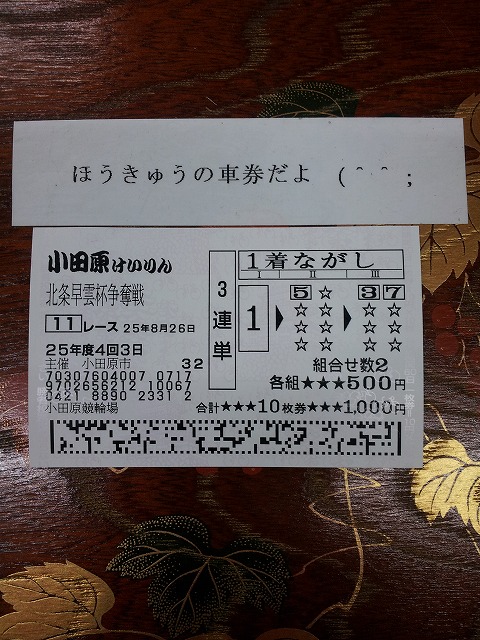 ほうきゅうの車券だよ (^ ^;
小田原けいりん
北条早雲杯争奪戦
11レース 25年8月26日
25年度4回3日
主催 小田原市 32
70307604007 0717
9702656212 10067
0421 8890 2331 2
小田原競輪場
3連単
1着ながし
I II III
1 5☆ 37
☆☆ ☆☆
☆☆ ☆☆
☆☆ ☆☆
組合せ数2
各組★★★500円
合計★★★10枚券★★★1,000円